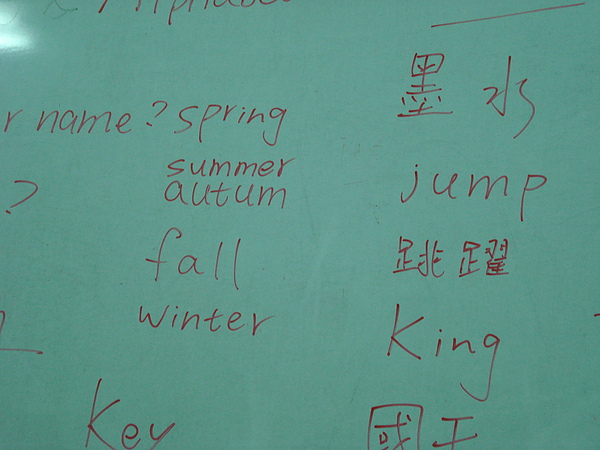 Alphabe
墨水
r name? spring
summer
autum
jump
?
fall
跳躍
winter
King
Key
國王